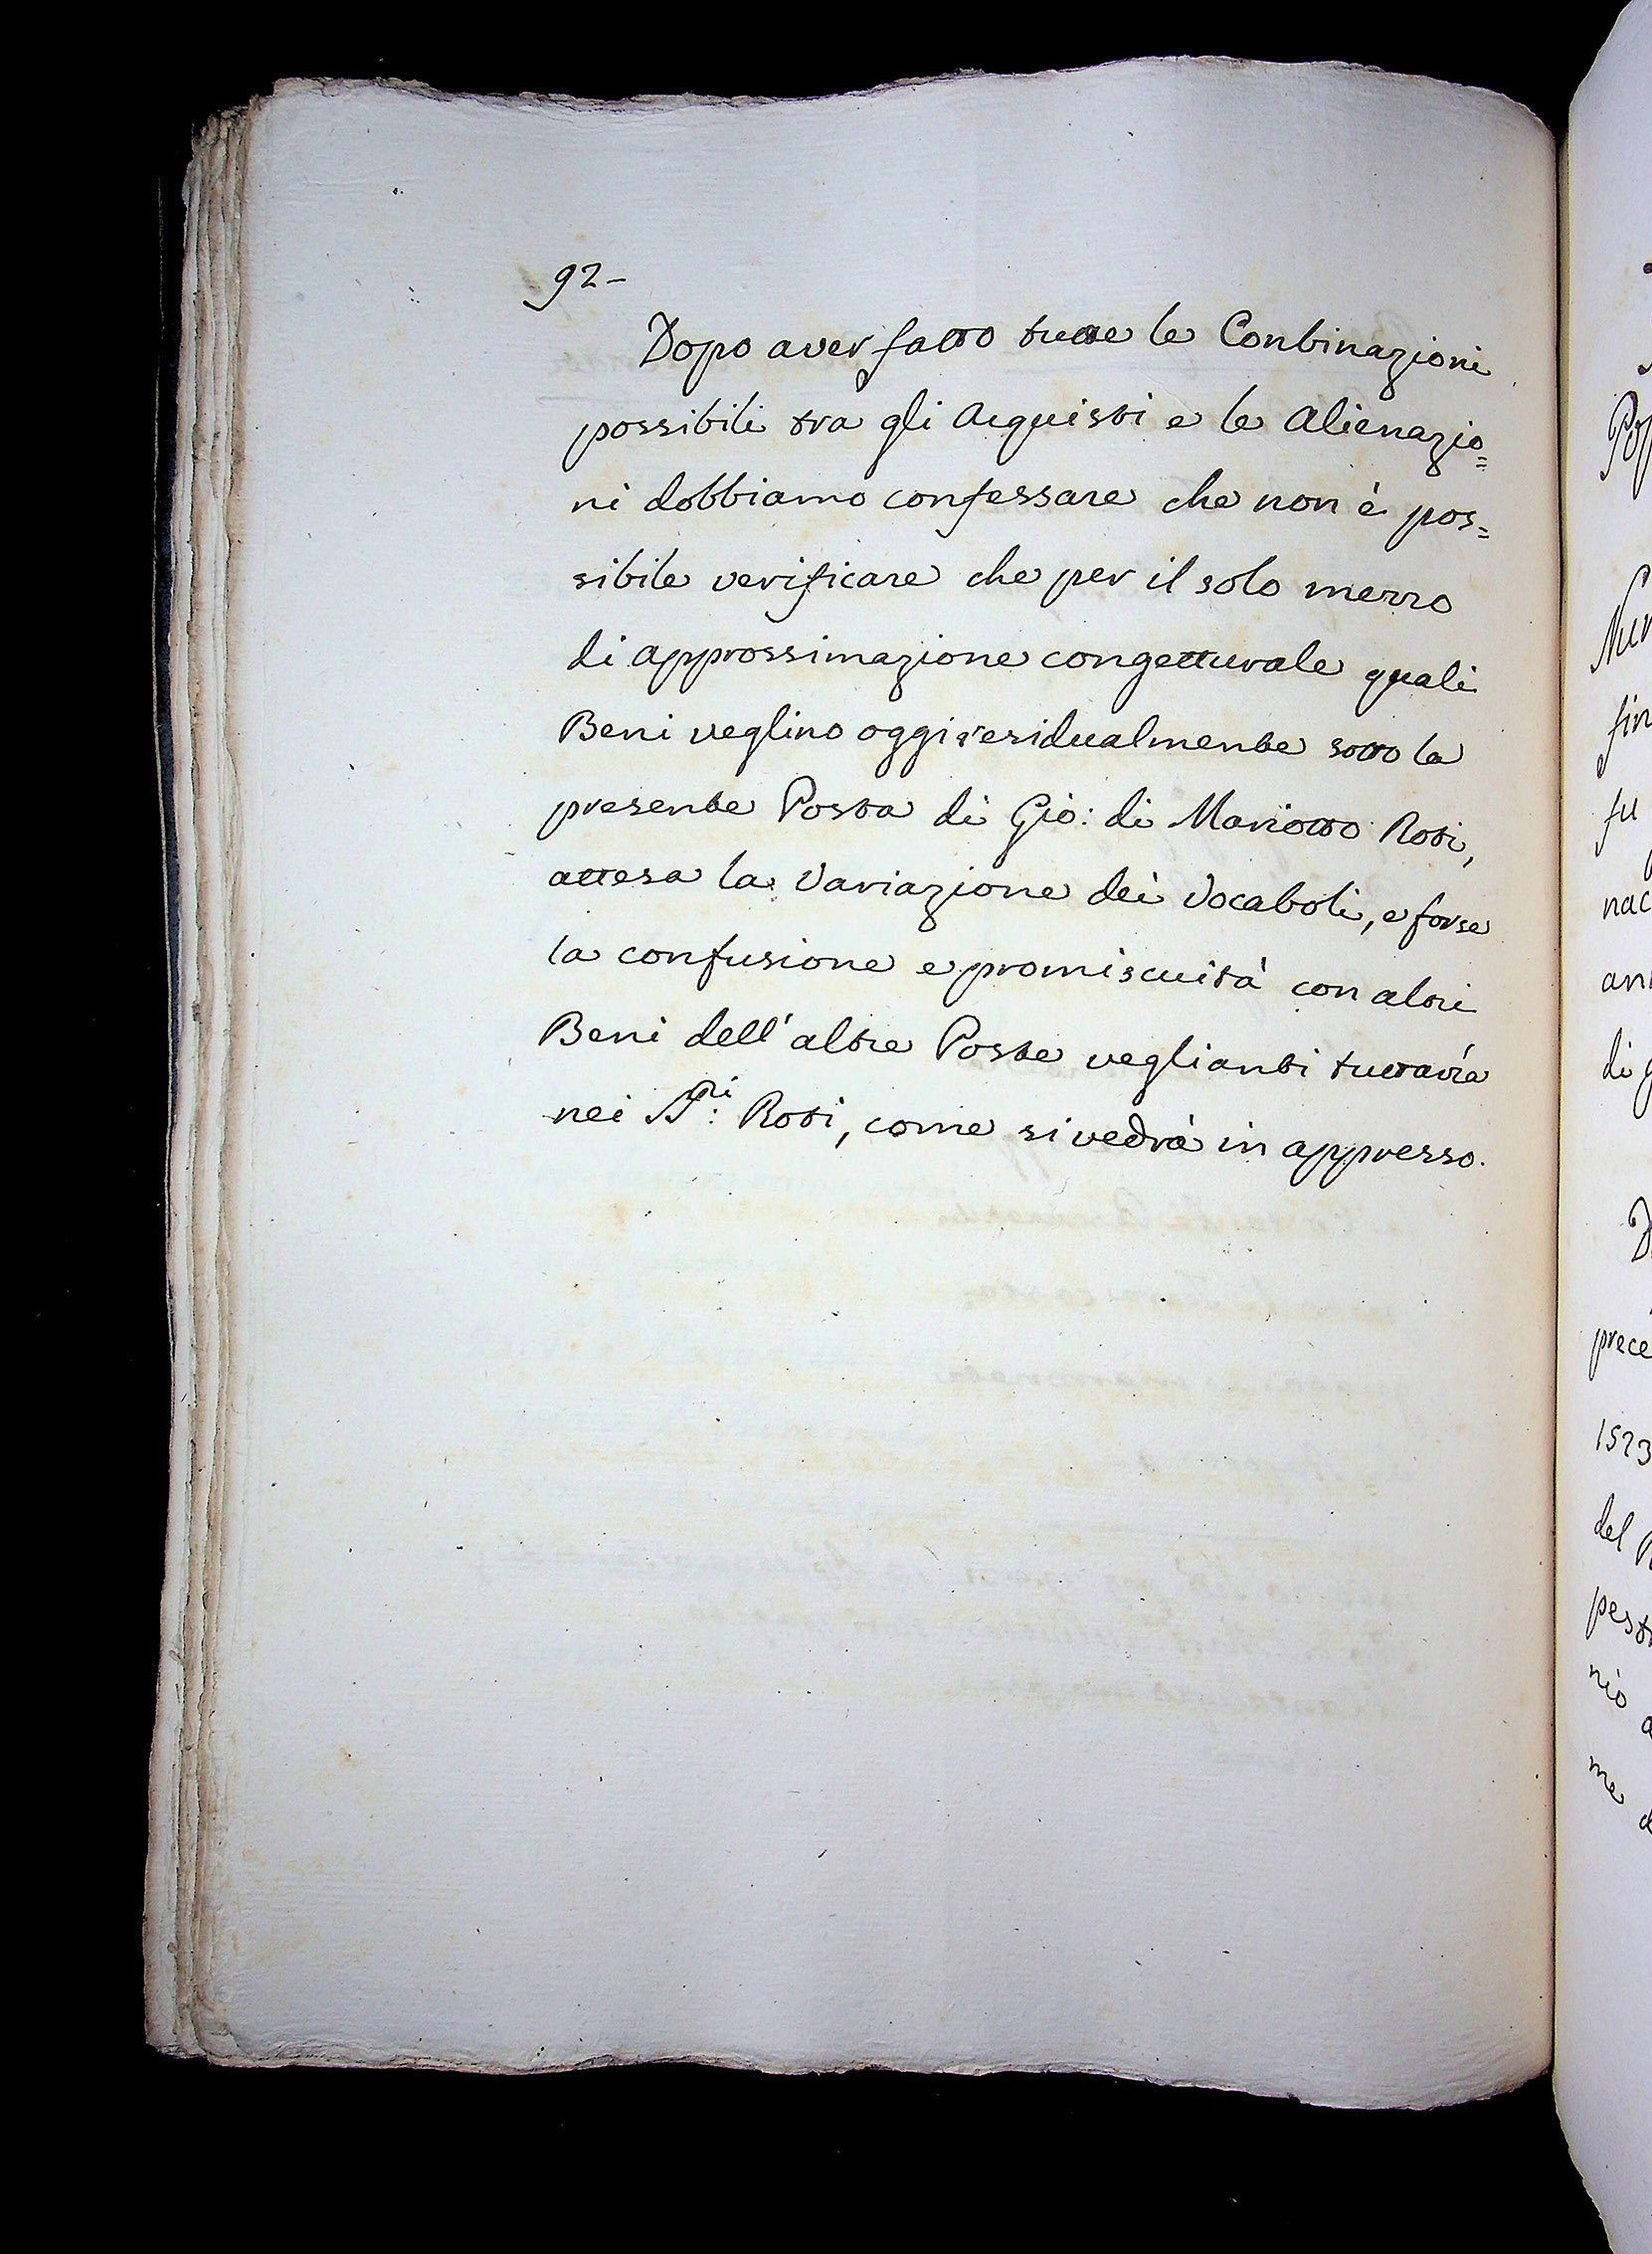 92-
Dopo aver fatto tutte le Conbinazioni
possibili tra gli Acquisti e le Alienazio=
ni dobbiamo confessare che non è pos=
sibile verificare che per il solo mezzo
di approssimazione congetturale quali
Beni veglino oggi residualmente sotto la
presente Posta di Gio: di Mariotto Roti,
attesa la Variazione dei Vocaboli, e forse
la confusione e promiscuità con altri
Beni dell'altre Poste veglianti tuttavìa
nei SS.ri: Roti, come si vedrà in appresso.
prece
1573
del
pest
nio
me
di
fu